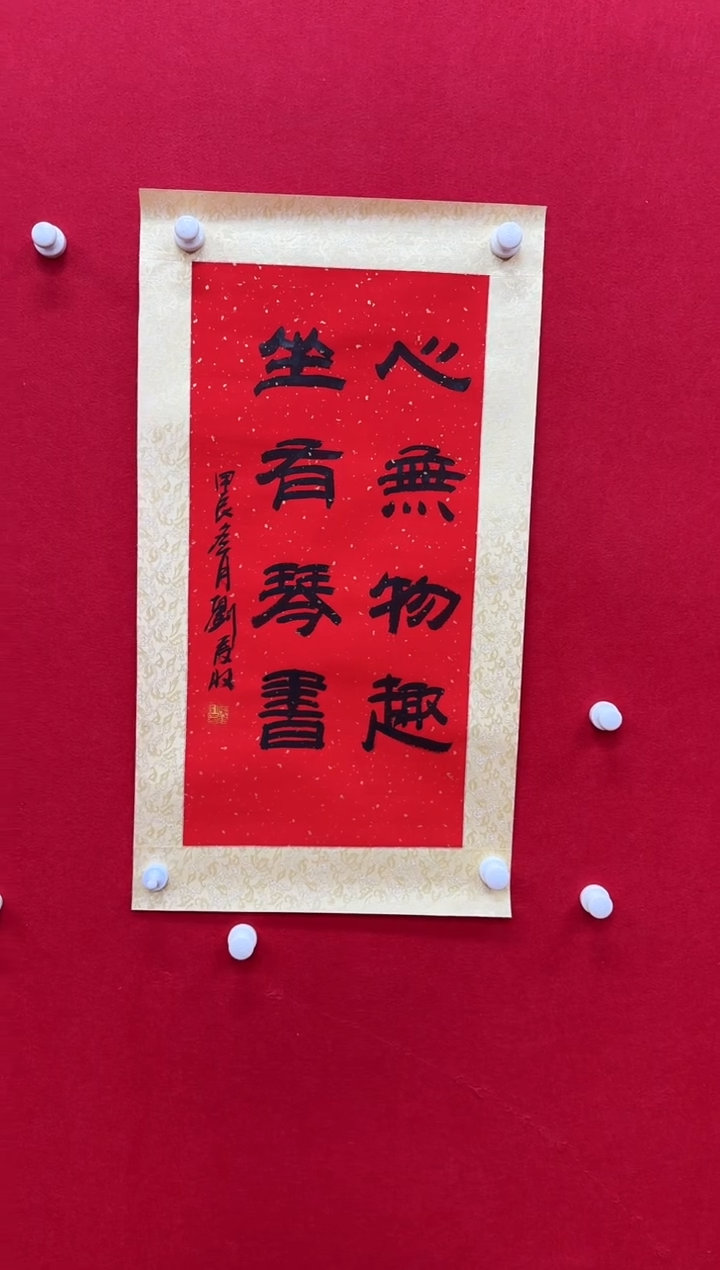 心無物趣
坐有琴書
甲辰冬月劉